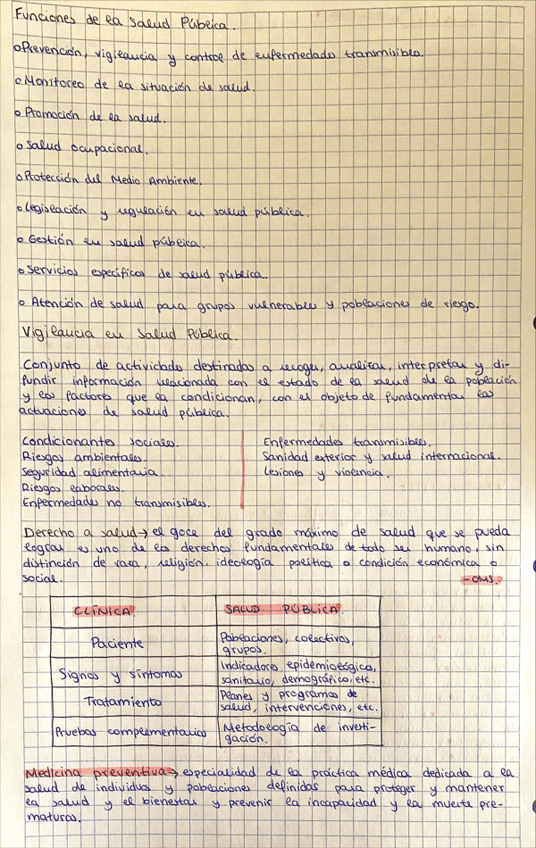 Funciones de la Salud Pública.
o Prevención, vigilancia y control de enfermedades transmisibles.
o Monitoreo de la situación de salud.
o Promoción de la salud.
o Salud ocupacional.
o Protección del Medio Ambiente.
o Legislación y regulación en salud pública.
o Gestión en salud pública.
o Servicios específicos de salud pública.
o Atención de salud para grupos vulnerables y poblaciones de riesgo.
Vigilancia en Salud Pública.
Conjunto de actividades destinadas a recoger, analizar, interpretar y di-
fundir información relacionada con el estado de la salud de la población
y los factores que la condicionan, con el objeto de fundamentar las
actuaciones de salud pública.
Condicionantes sociales.
Riesgos ambientales.
Seguridad alimentaria.
Riesgos laborales.
Enfermedades no transmisibles.
Enfermedades transmisibles.
Sanidad exterior y salud internacional.
Lesiones y violencia.
Derecho a salud → el goce del grado máximo de salud que se pueda
lograr es uno de los derechos fundamentales de todo ser humano, sin
distinción de raza, religión, ideología política o condición económica o
social.
-OMS.
CLÍNICA. SALUD PÚBLICA.
Paciente Poblaciones, colectivos,
grupos.
Signos y síntomas Indicadores epidemiológica,
sanitario, demográfico, etc.
Tratamiento Planes y programas de
salud, intervenciones, etc.
Pruebas complementarias Metodología de investi-
gación.
Medicina preventiva → especialidad de la práctica médica dedicada a la
salud de individuos y poblaciones definidas para proteger y mantener
la salud y el bienestar y prevenir la incapacidad y la muerte pre-
maturas.